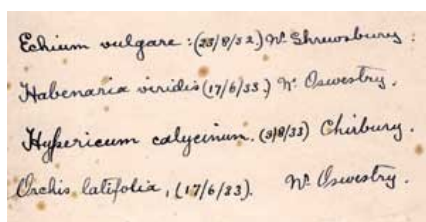 Echium vulgare : (23/8/32.) Nr. Shrewsbury :
Habenaria viridis (17/6/33.) Nr. Oswestry.
Hypericum calycinum. (9/8/33) Chirbury.
Orchis latifolia, (17/6/33). Nr. Oswestry.